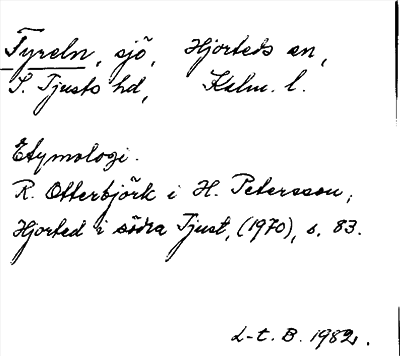 Tyreln, sjö, Hjorteds sn,
S. Tjusts hd, Kalm. l.
Etymologi.
R. Otterbjörk i H. Petersson,
Hjorted i södra Tjust, (1970), s. 83.
L-t. B. 1982.